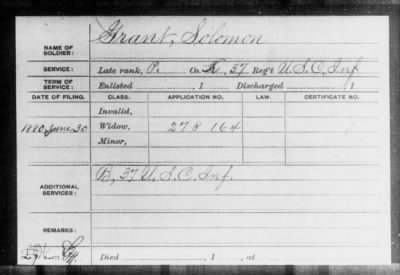 Grant, Solomon
NAME OF SOLDIER:
SERVICE: Late rank, P. Co. K, 37 Reg't U.S.C. Inf.
TERM OF SERVICE: Enlisted , 1 Discharged , 1
DATE OF FILING. CLASS. APPLICATION NO. LAW. CERTIFICATE NO.
Invalid,
1880 June 30 Widow, 278 164
Minor,
B, 37 U.S.C. Inf.
ADDITIONAL SERVICES:
REMARKS:
Died , 1 , at